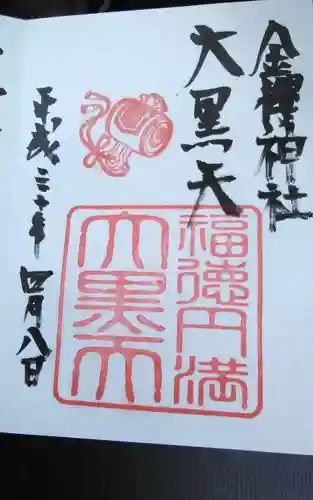 金櫻神社
大黒天
福徳円満
大黒天
平成三十年
四月八日